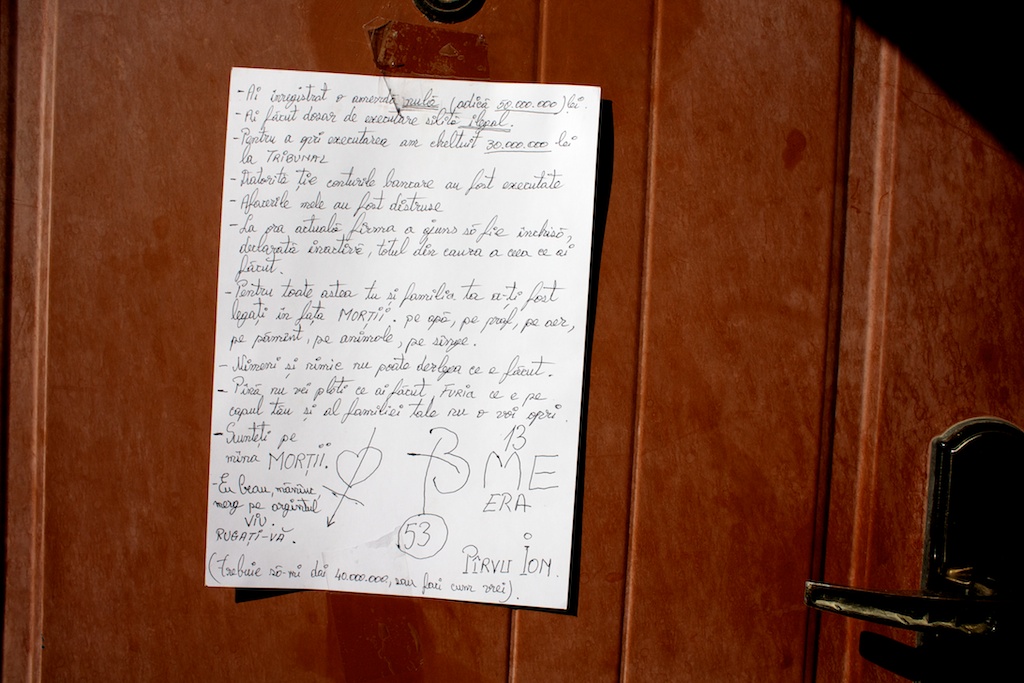 - Ai inregistrat o amendă nulă (adică 50.000.000) lei.
- Ai făcut dosar de executare silită ilegal.
- Pentru a opri executarea am cheltuit 30.000.000 lei
la TRIBUNAL
- Datorită ție conturile bancare au fost executate
- Afacerile mele au fost distruse
- La ora actuală firma a ajuns să fie inchisă,
declarată inactivă, totul din cauza a ceea ce ai
făcut.
- Pentru toate astea tu și familia ta a-ți fost
legați in fața MORȚII. pe apă, pe praf, pe aer,
pe pămint, pe animale, pe singe.
- Nimeni și nimic nu poate dezlega ce e făcut.
- Pină nu vei plăti ce ai făcut, FURIA ce e pe
capul tău și al familiei tale nu o voi opri.
- Sunteți pe
mina MORȚII.
- Eu beau, măninc,
merg pe argintul
VIU.
RUGAȚI-VĂ.
B 13
M E
ERA
53
PÎRVU ION.
(Trebuie să-mi dai 40.000.000, sau faci cum vrei).